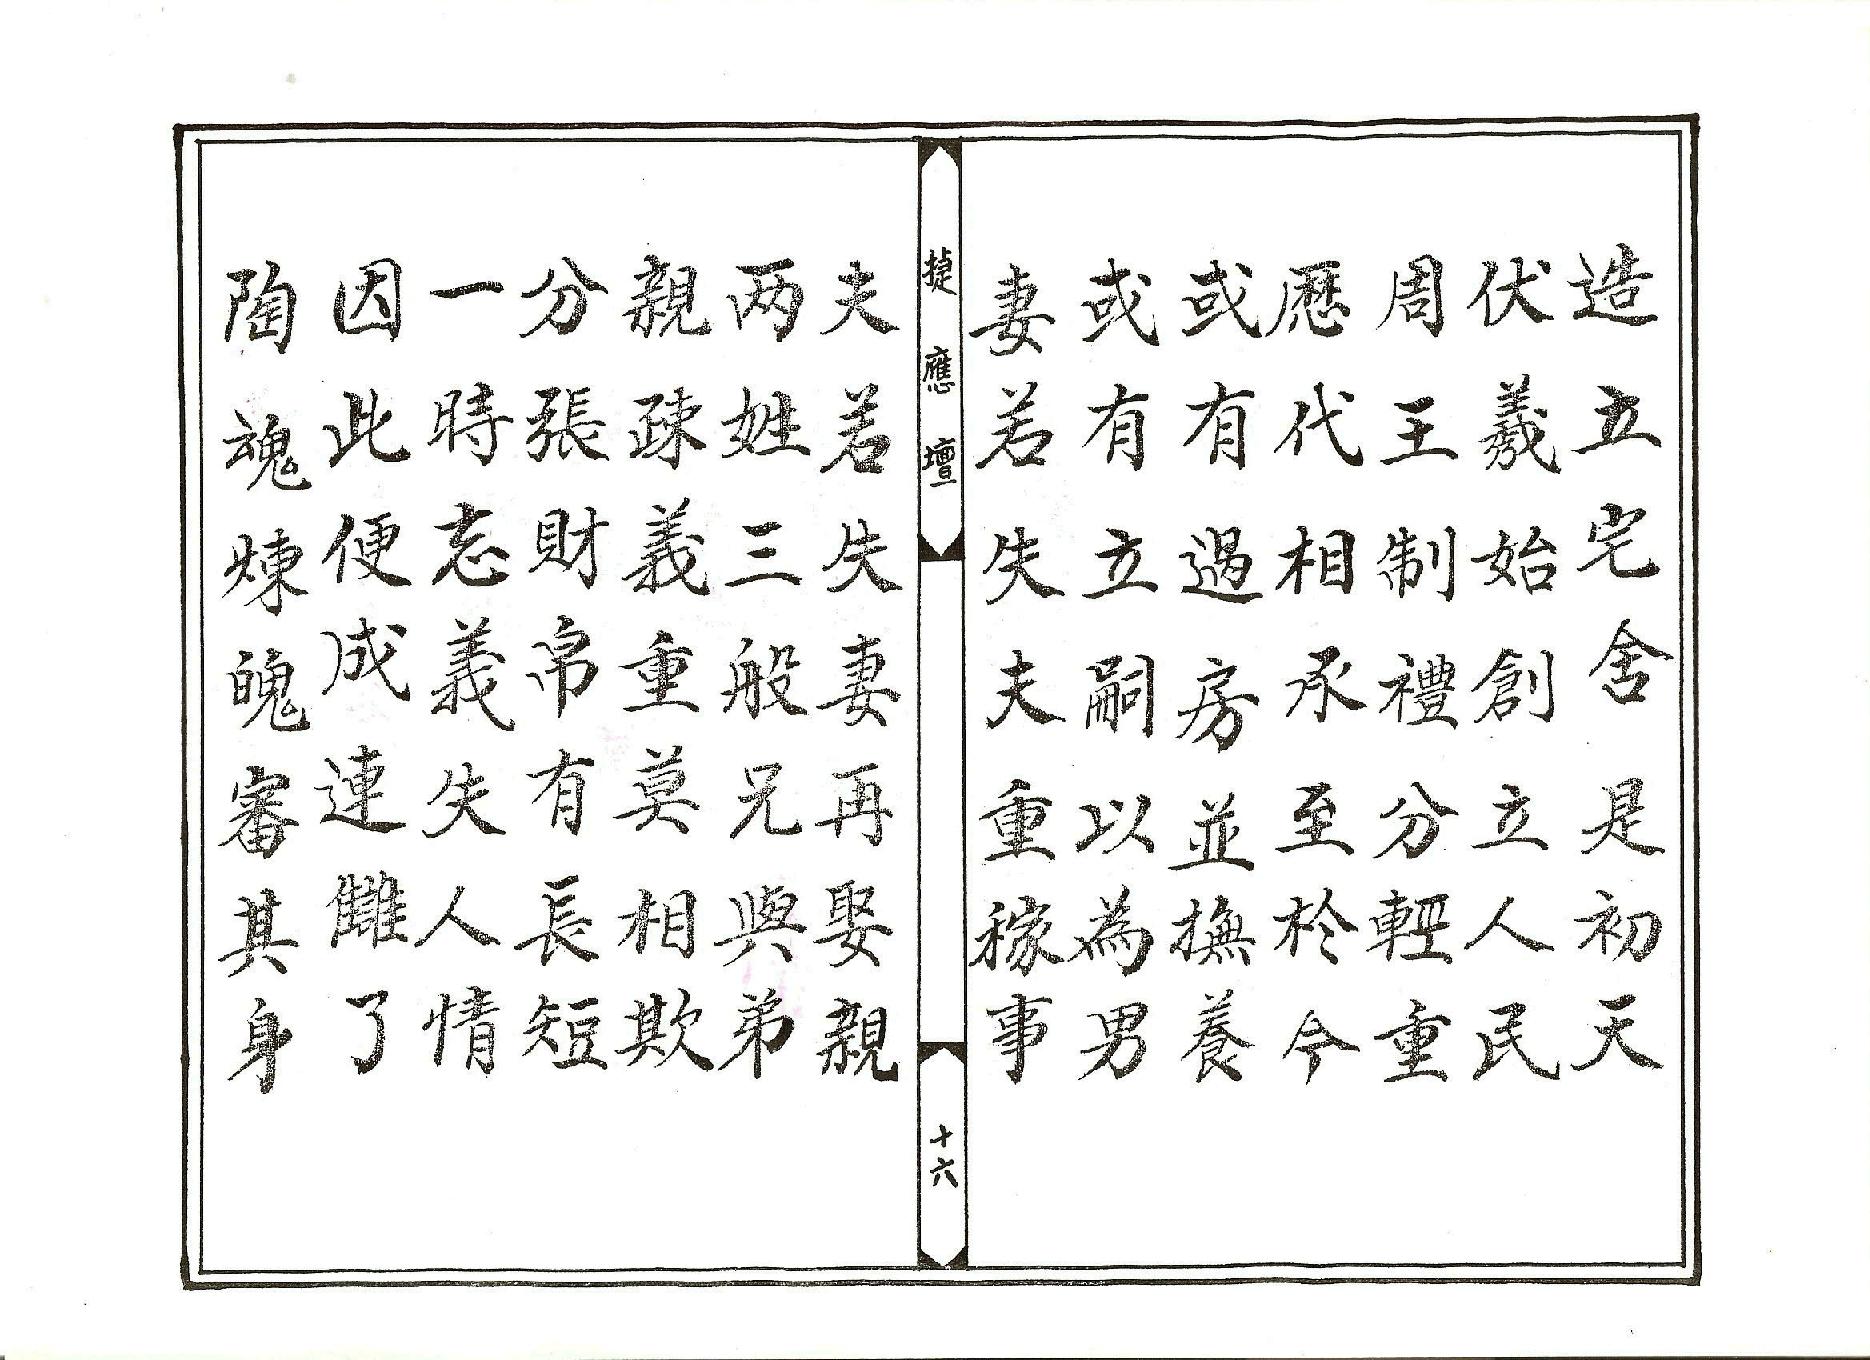 造立宅舍是初天
伏羲始創立人民
周王制禮分輕重
歷代相承至於今
或有過房並撫養
或有立嗣以為男
妻若失夫重稼事
捷應壇
十六
夫若失妻再娶親
两姓三般兄與弟
親疎義重莫相欺
分張財帛有長短
一時忘義失人情
因此便成連讎了
陶魂煉魄審其身